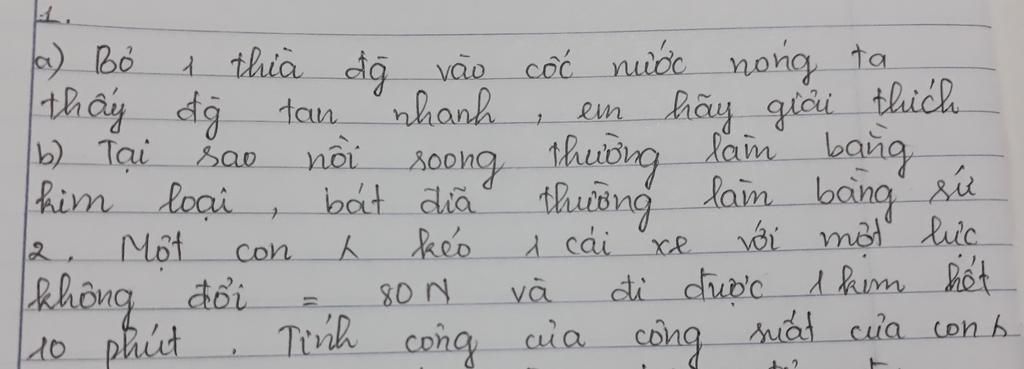 1.
a) Bỏ 1 thìa đg vào cốc nước nóng ta
thấy đg tan nhanh, em hãy giải thích
b) Tại sao nồi soong thường làm bằng
kim loại, bát đĩa thường làm bằng sứ
2. Một con h kéo 1 cái xe với một lực
không đổi = 80N và đi được 1 km hết
10 phút. Tính công của công suất của con h